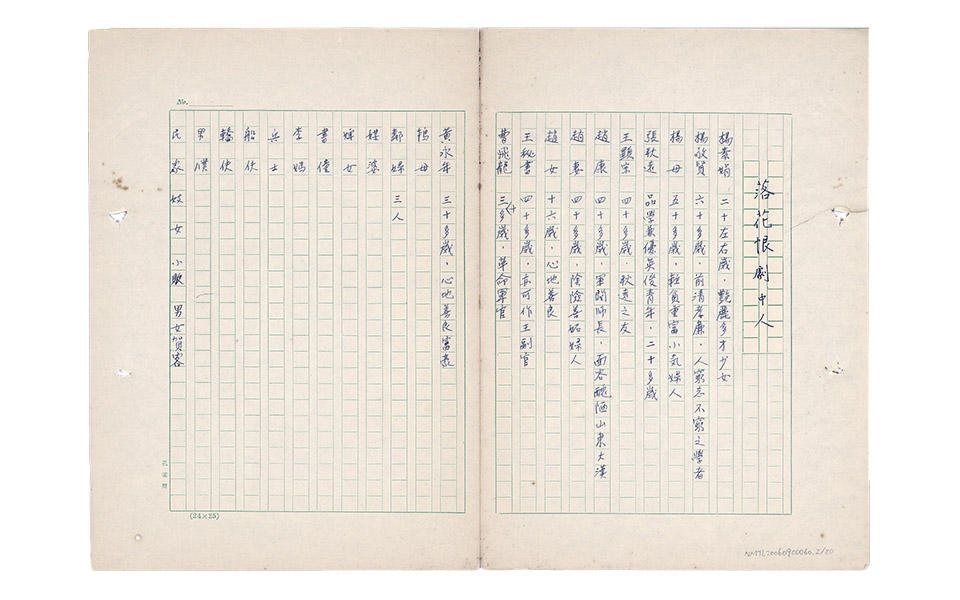 落花恨劇中人
楊素娟 二十左右歲，艷麗多才少女
楊啟賢 六十多歲，前清孝廉，人窮志不窮之學者
楊母 五十多歲，輕貧重富小氣婦人
張秋遠 品學兼優英俊青年，二十多歲
王顯宗 四十多歲，秋遠之友
趙康 四十多歲，軍閥師長，面容醜陋山東大漢
趙妻 四十多歲，陰險善妬婦人
趙女 十六歲，心地善良
王秘書 四十多歲，亦可作王副官
曹飛龍 三十多歲，革命軍官
黃永年 三十多歲，心地善良富
鴇母
鄰婦 三人
媒婆
婢女
書僮
李媽
兵士
船伕
轎伕
男僕
民眾 妓女 小販 男女賀客
No.
(24×25)
NMTL20060900060.2/80